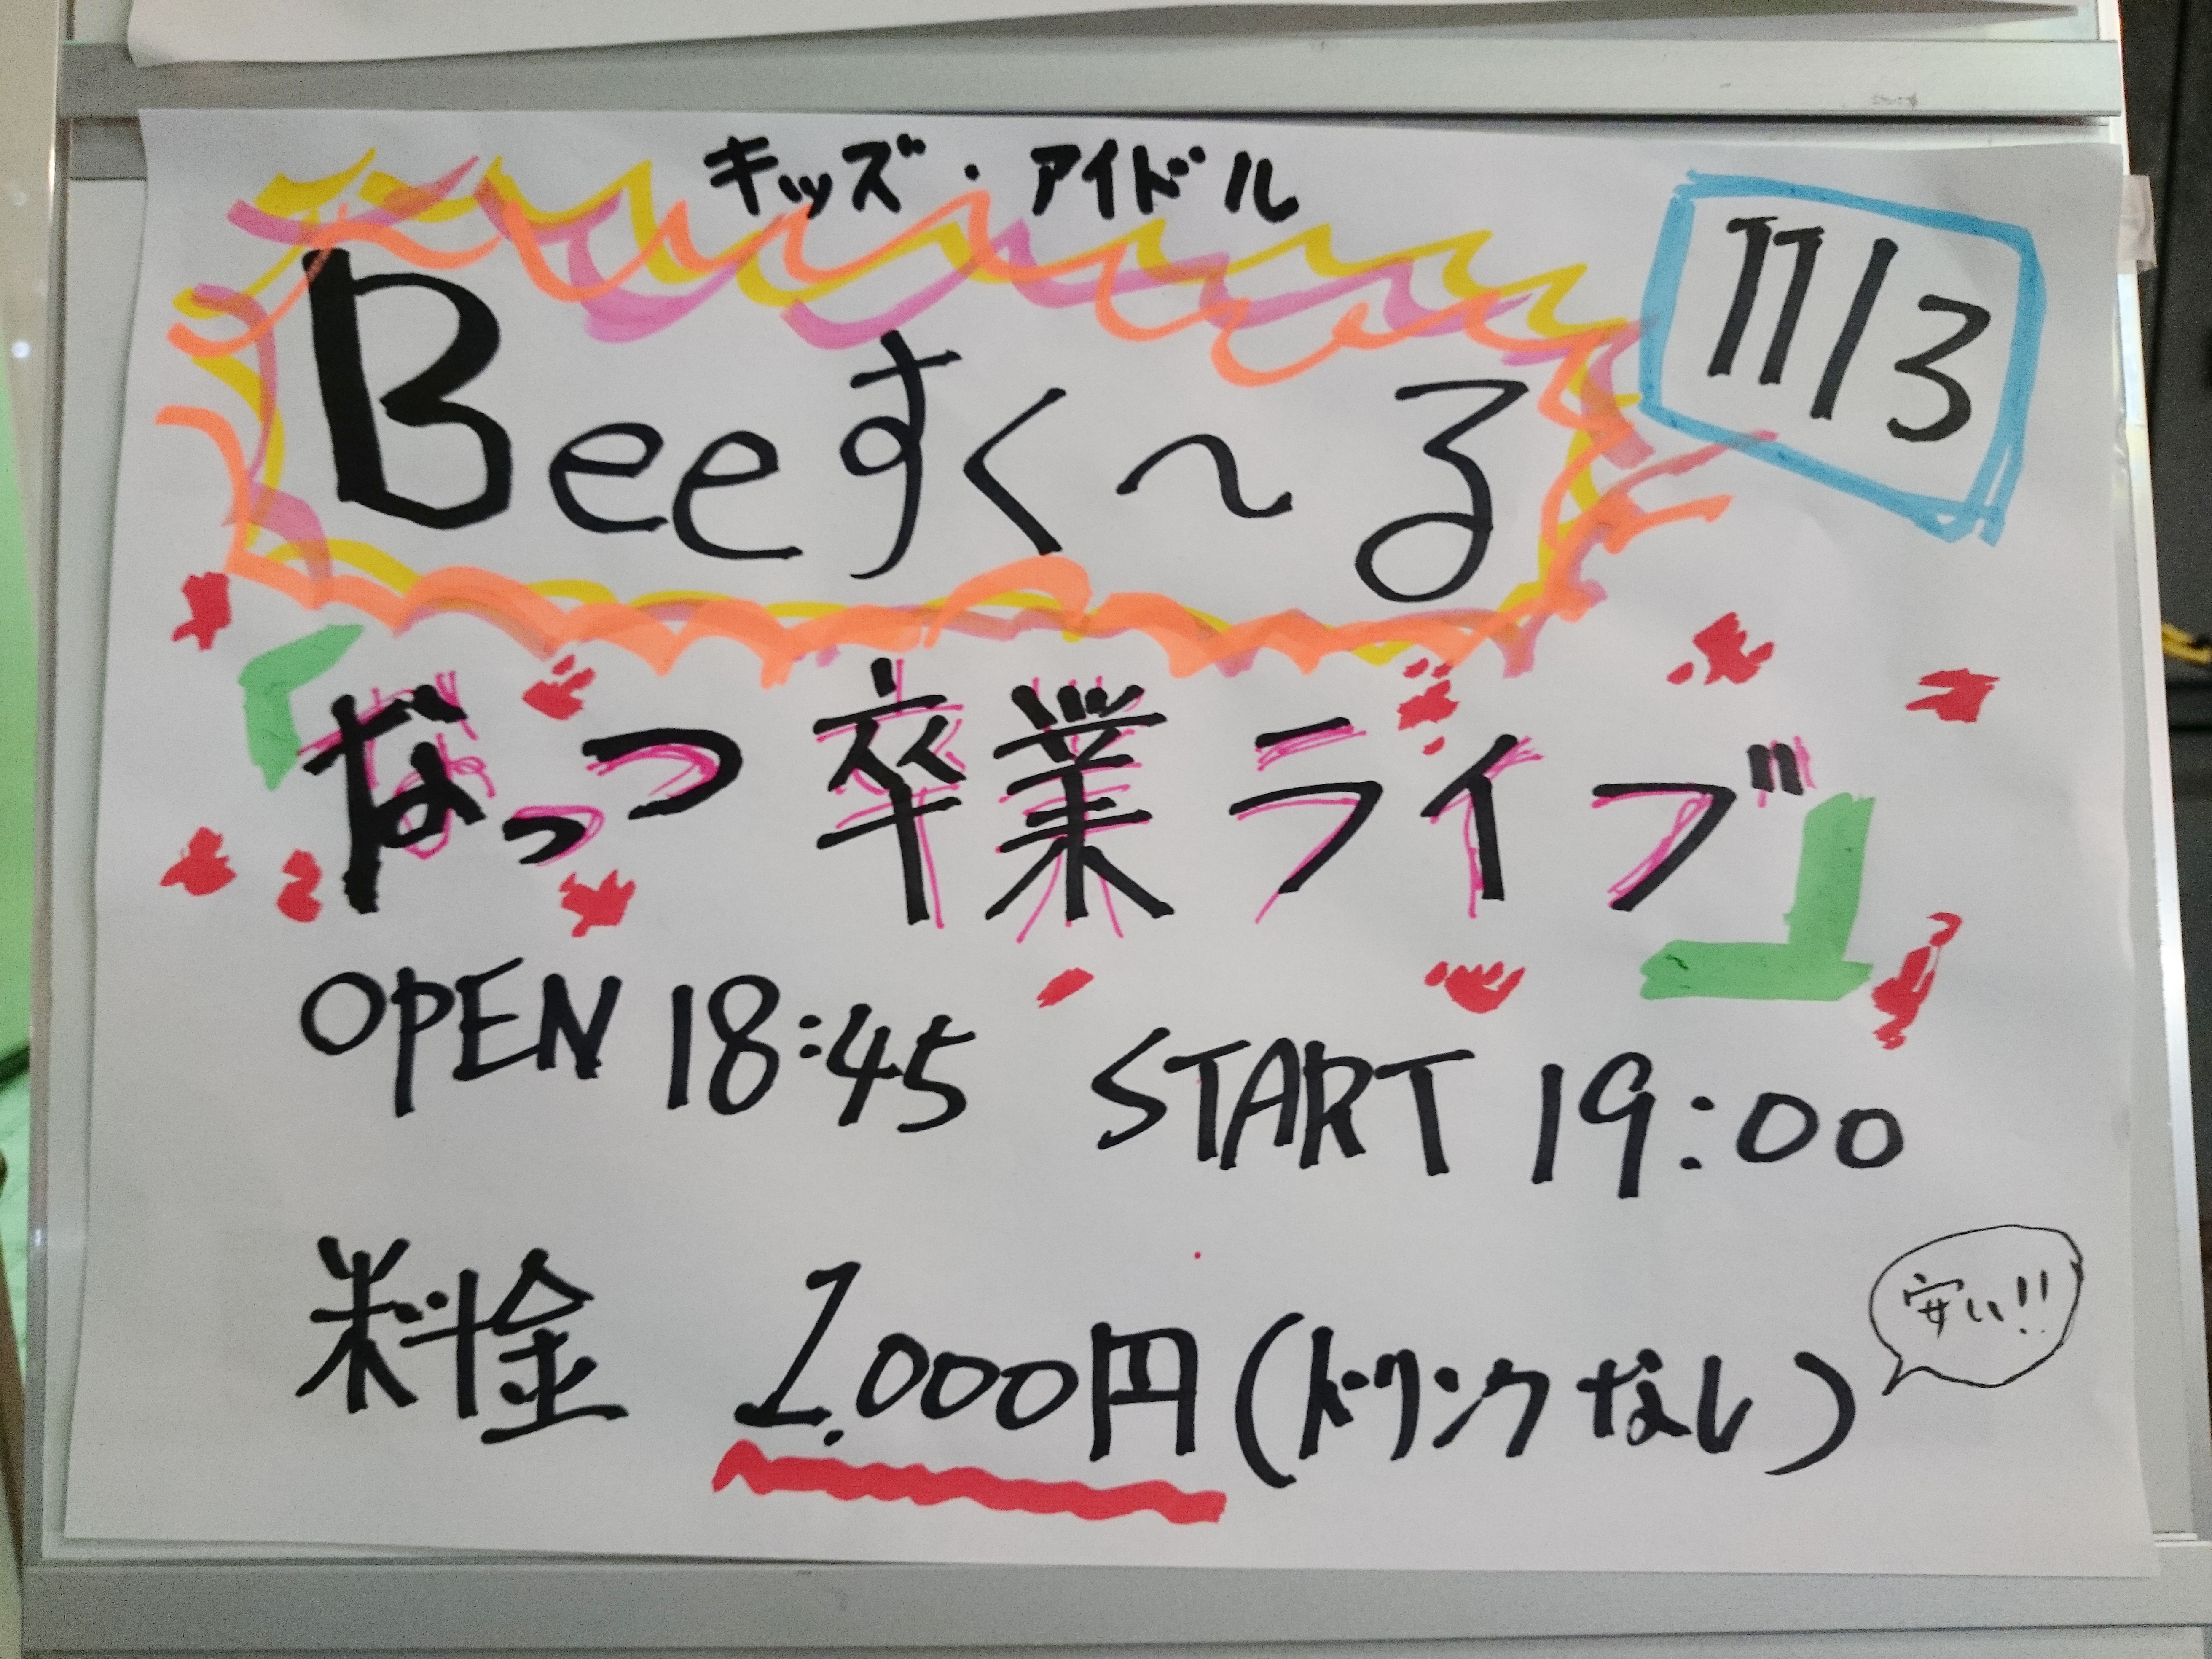 キッズ・アイドル
11/3
Beeすく〜る
「なっつ 卒業ライブ」
OPEN 18:45 START 19:00
料金 1,000円(ドリンクなし)
安い!!